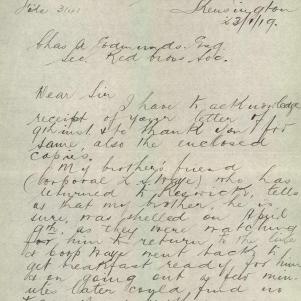 Kensington
23/1/19.
Chas A Edmunds. Esq
Sec. Red Cross. Soc.
Dear Sir
I have to acknowledge
receipt of your letter of
9th inst & to thank you for
same, also the enclosed
copies.
My brother's friend
(Corporal Wage) who has
returned to Keswick, tells
us that my brother, he is
sure, was shelled on April
9th. as they were watching
for him to return to the line
& Corp Wage went back to
get breakfast ready for him
as on going out a few min-
utes later could find no